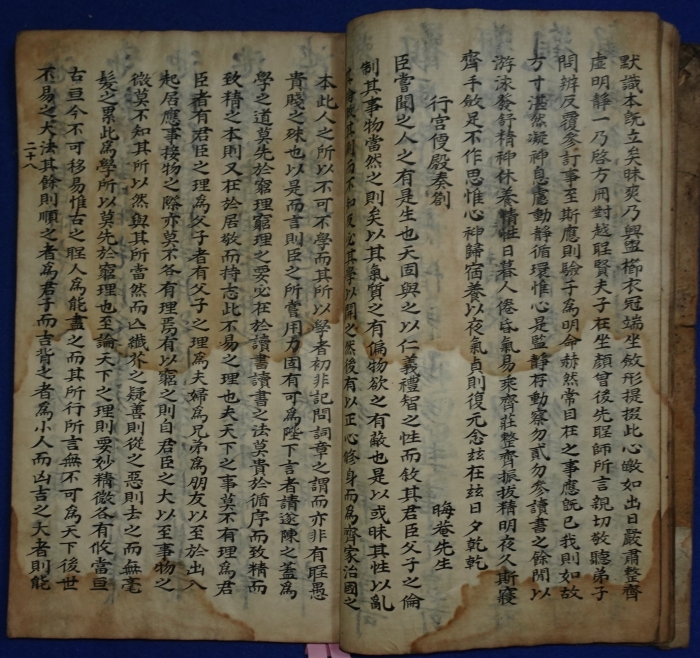 默識本旣立矣昧爽乃興盥櫛衣冠端坐斂形提掇此心皦如出日嚴肅整齊
虛明靜一乃啓方冊對越聖賢夫子在坐顔曾後先聖師所言親切敬聽弟子
問辨反覆參訂事至斯應則驗于爲明命赫然常目在之事應旣已我則如故
方寸湛然凝神息慮動靜循環惟心是監靜存動察勿貳勿參讀書之餘閒以
游泳發舒精神休養情性日暮人倦昏氣易乘齊莊整齊振拔精明夜久斯寢
齊手斂足不作思惟心神歸宿養以夜氣貞則復元念玆在玆日夕乾乾
行宮便殿奏劄
晦菴先生
臣嘗聞之人之有是生也天固與之以仁義禮智之性而敘其君臣父子之倫
制其事物當然之則矣以其氣質之有偏物欲之有蔽也是以或昧其性以亂
其倫敗其則而不知反必其學以開之然後有以正心修身而爲齊家治國之
本此人之所以不可不學而其所以學者初非記問詞章之謂而亦非有聖愚
貴賤之殊也以是而言則臣之所嘗用力固有可爲陛下言者請遂陳之蓋爲
學之道莫先於窮理窮理之要必在於讀書讀書之法莫貴於循序而致精而
致精之本則又在於居敬而持志此不易之理也夫天下之事莫不有理爲君
臣者有君臣之理爲父子者有父子之理爲夫婦爲兄弟爲朋友以至於出入
起居應事接物之際亦莫不各有理焉有以窮之則自君臣之大以至事物之
微莫不知其所以然與其所當然而亾纖芥之疑善則從之惡則去之而無毫
髮之累此爲學所以莫先於窮理也至論天下之理則要妙精微各有攸當亘
古亘今不可移易惟古之聖人爲能盡之而其所行所言無不可爲天下後世
不易之大法其餘則順之者爲君子而吉背之者爲小人而凶吉之大者則能
二十八